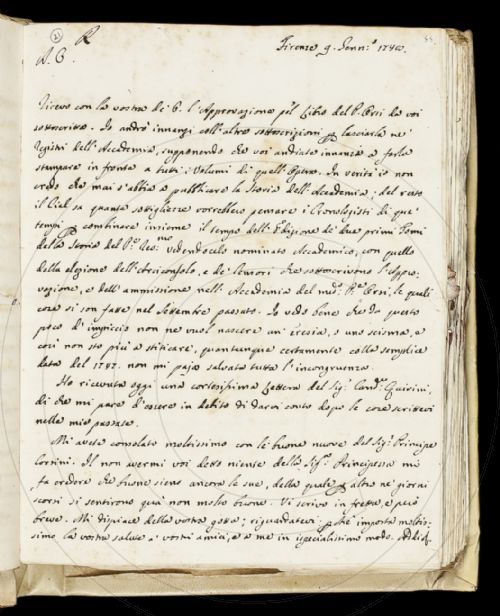 2)
R
A. C.
Firenze 9. Genn:º 1748.
55.
Ricevo con la vostra de' 6. l'Approvazione pel Libro del P. Orsi da voi
sottoscritta. Io andrò innanzi coll'altre sottoscrizioni per lasciarla ne'
Registri dell'Accademia, supponendo che voi andiate innanzi a farla
stampare in fronte a tutti i Volumi di quell'Opera. In verità io non
credo che mai s'abbia a pubblicare la Storia dell'Accademia: del resto
il Ciel sa quante sottigliezze vorrebbero pensare i Cronologisti di que'
tempi per combinare insieme il tempo dell'Edizione de' due primi Tomi
della Storia del P. vedendolo nominato Accademico, con quello
della elezione dell'Arciconsolo, e de' Censori che sottoscrivono l'Appro-
vazione, e dell'ammissione nell'Accademia del med.º P. Orsi, le quali
cose si son fatte nel Settembre passato. Io vedo bene che da questo
poco d'impiccio non ne vuol nascere un'eresia, o uno scisma, e
così non sto più a stiticare, quantunque certamente colla semplice
data del 1747. non mi paja salvata tutta l'incongruenza.
Ho ricevuta oggi una cortesissima Lettera del Sig: Card. Quirini,
di che mi pare d'essere in debito di darvi conto dopo le cose scrittevi
nella mia passata.
Mi avete consolato moltissimo con le buone nuove del Sig: Principe
Corsini. Il non avermi voi detto niente della Sig. Principessa mi
fa credere che buone sieno ancora le sue, della quale per altro ne' giorni
scorsi si sentirono quà non molto buone. Vi scrivo in fretta, e però
breve. Mi dispiace della vostra gotta; riguardatevi perchè importa moltis-
simo la vostra salute a' vostri amici, e a me in ispecialissimo modo.